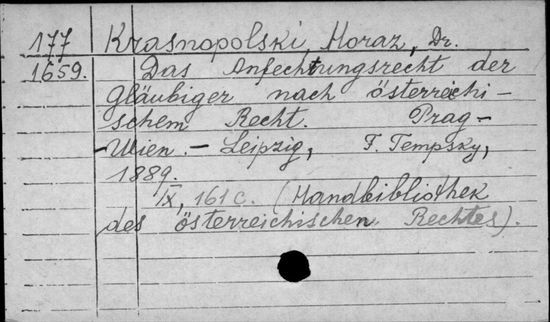 177 Krasnopolski, Horaz, Dr.
1659. Das Anfechtungsrecht der
Gläubiger nach österreichi-
schem Recht. Prag-
-Wien.- Leipzig, F. Tempsky,
1889.
IX, 161 c. (Handbibliothek
des österreichischen Rechtes).